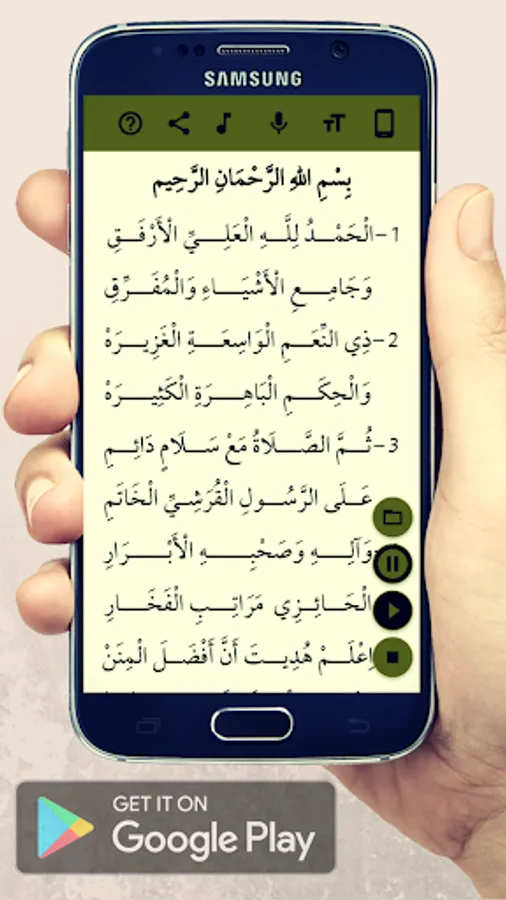 SAMSUNG
بِسْمِ اللهِ الرَّحْمَانِ الرَّحِيم
1-الْحَمْدُ لِلَّهِ الْعَلِيِّ الْأَرْفَقِ
وَجَامِعِ الْأَشْيَاءِ وَالْمُفَرِّقِ
2-ذِي النِّعَمِ الْوَاسِعَةِ الْغَزِيرَهْ
وَالْحِكَمِ الْبَاهِرَةِ الْكَثِيرَهْ
3-ثُمَّ الصَّلَاةُ مَعْ سَلَامٍ دَائِمِ
عَلَى الرَّسُولِ الْقُرَشِيِّ الْخَاتَمِ
وَآلِهِ وَصَحْبِهِ الْأَبْرَارِ
الْحَائِزِي مَرَاتِبِ الْفَخَارِ
اِعْلَمْ هُدِيتَ أَنَّ أَفْضَلَ الْمِنَنْ
GET IT ON
Google Play